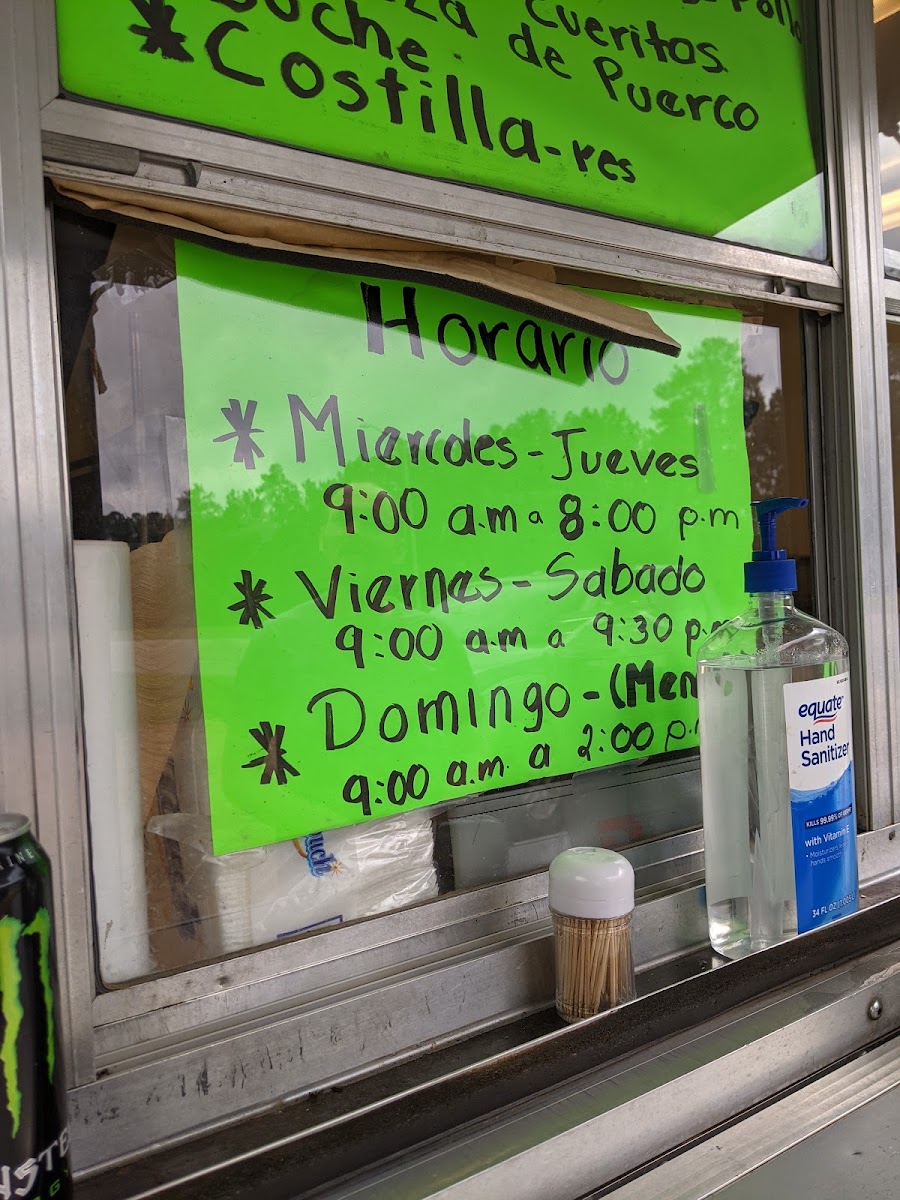 Cueritos
Buche. de Puerco
*Costilla-res
Horario
* Miercoles-Jueves
9:00 a.m a 8:00 p.m
* Viernes-Sabado
9:00 a.m a 9:30 p.m
* Domingo-(Men
9:00 a.m. a 2:00 p.m
equate
Hand
Sanitizer
KILLS 99.99% OF
with Vitamin E
34 FL OZ